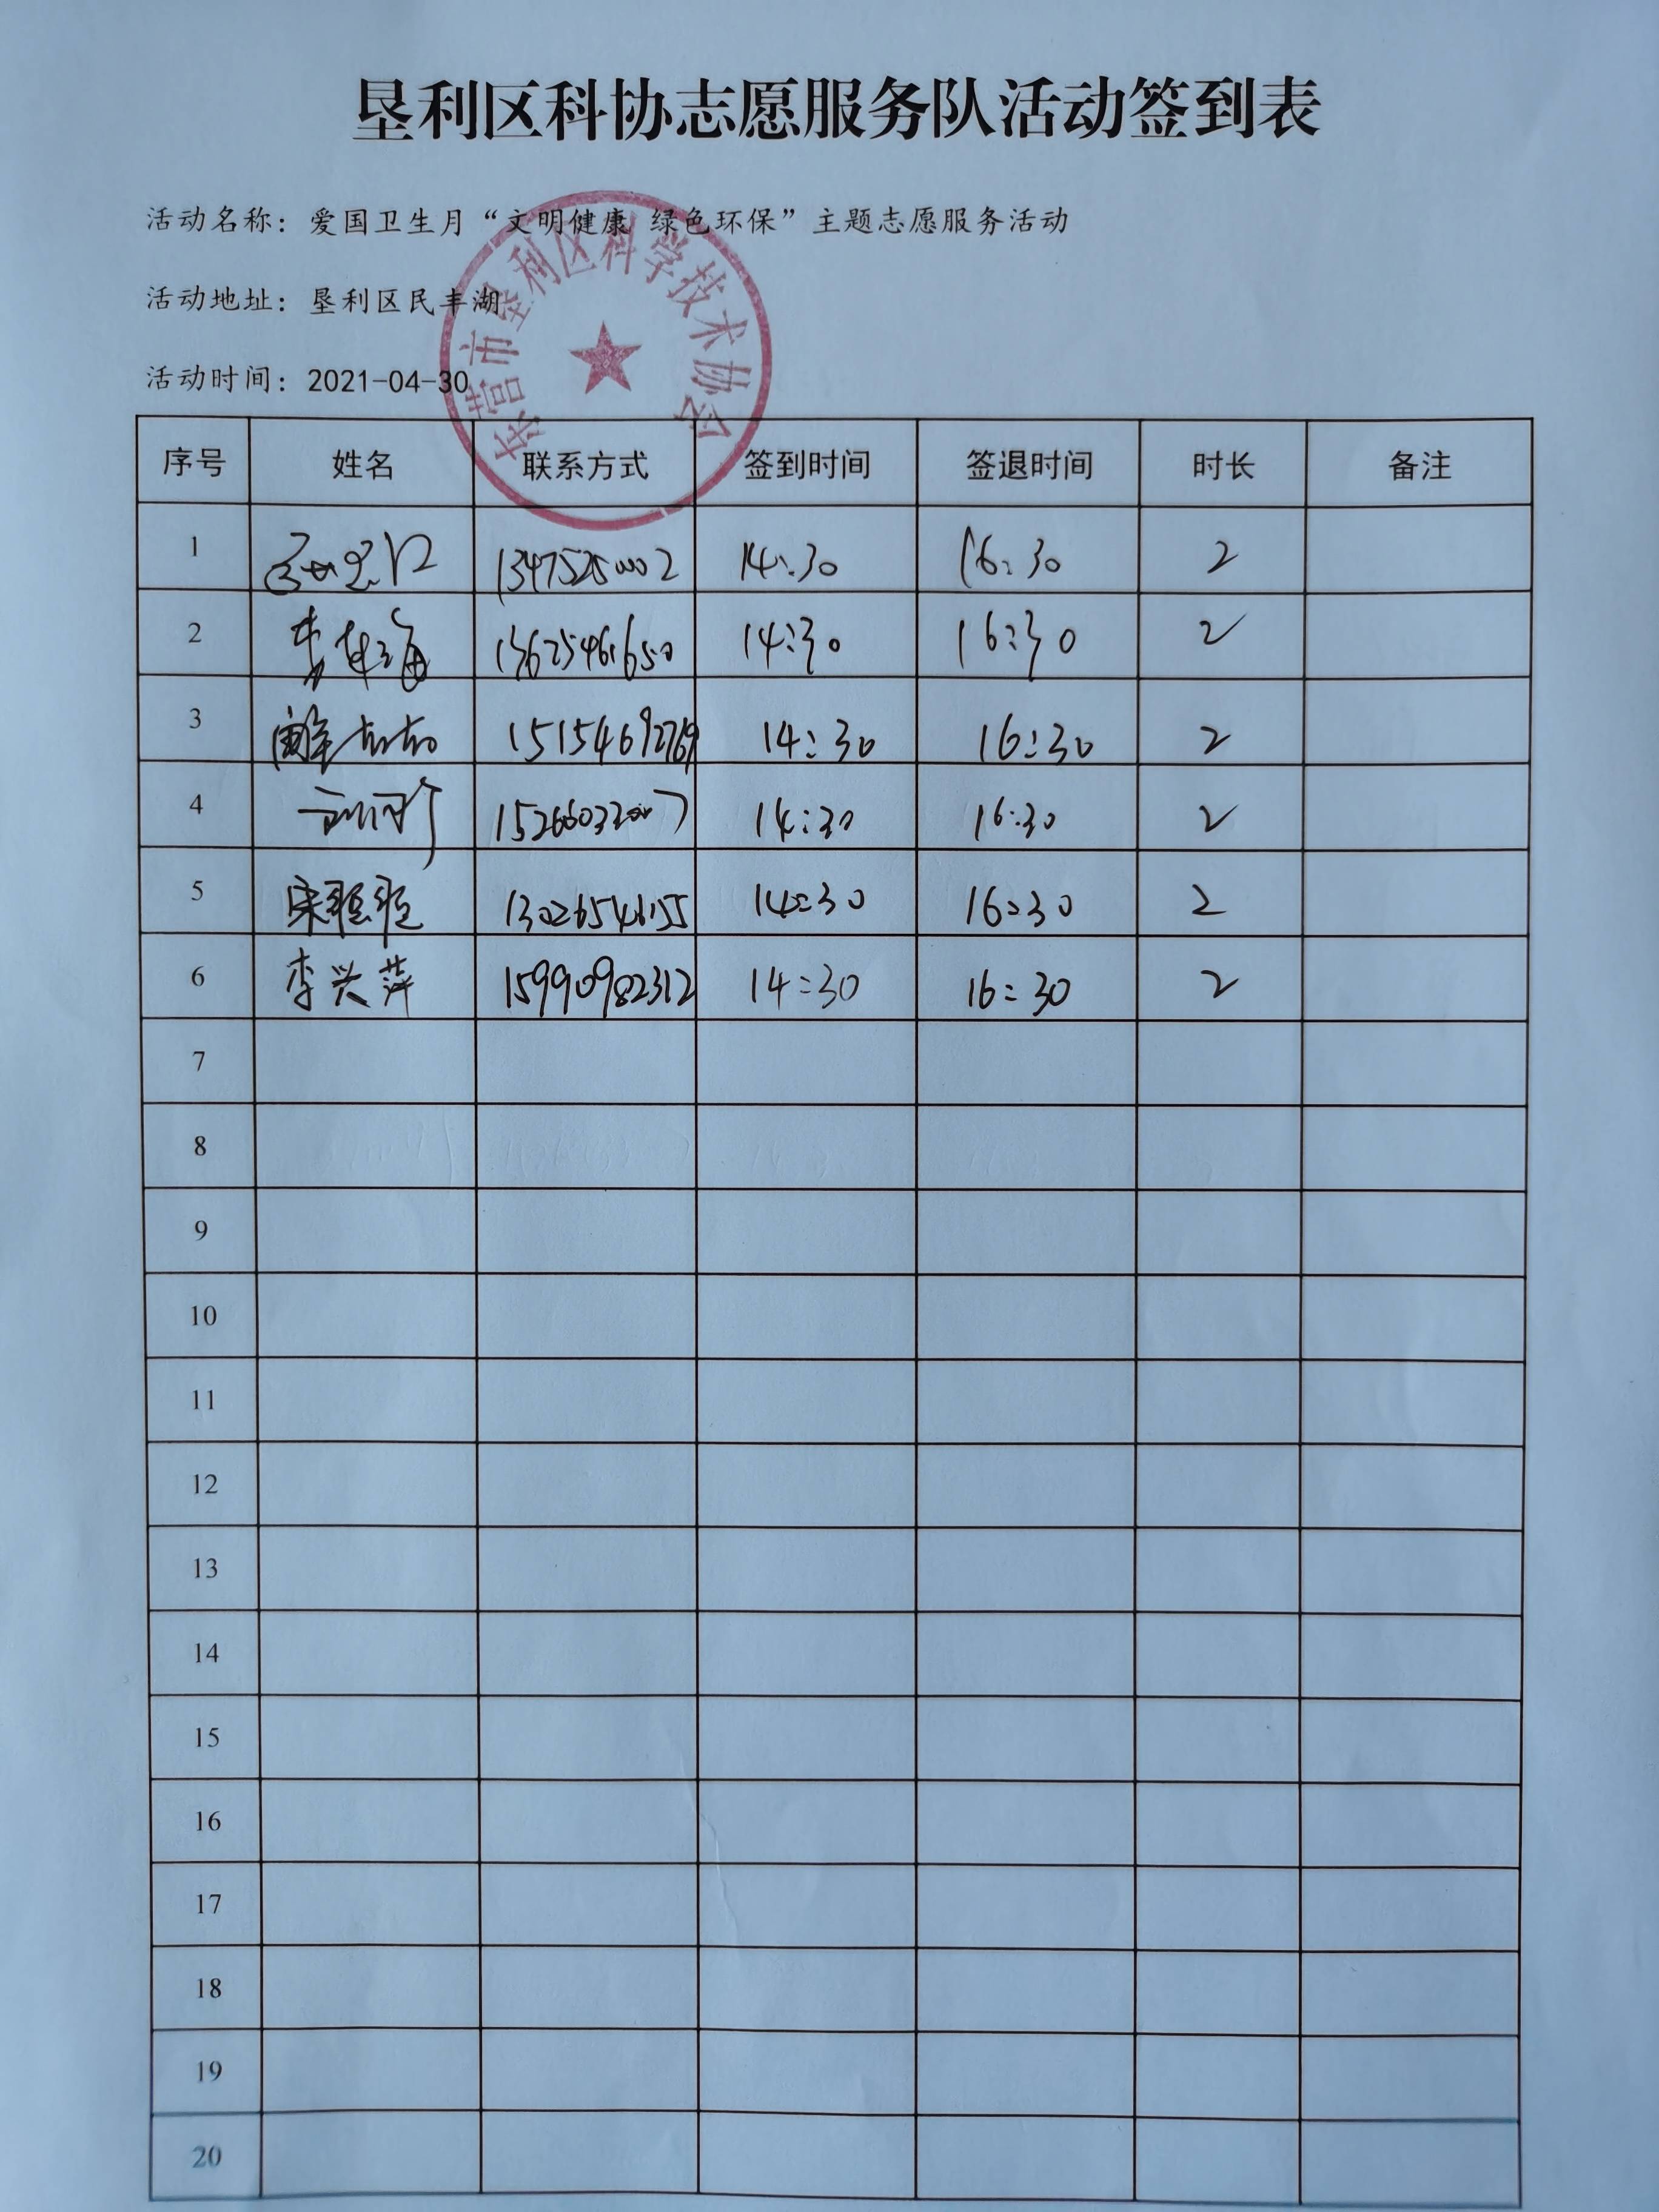 垦利区科协志愿服务队活动签到表
活动名称：爱国卫生月“文明健康 绿色环保”主题志愿服务活动
活动地址：垦利区民丰湖
活动时间：2021-04-30
东营市垦利区科学技术协会
序号 姓名 联系方式 签到时间 签退时间 时长 备注
1 14:30 16:30 2
2 14:30 16:30 2
3 15154692769 14:30 16:30 2
4 14:30 16:30 2
5 13026546155 14:30 16:30 2
6 李兴萍 15990982312 14:30 16:30 2
7
8
9
10
11
12
13
14
15
16
17
18
19
20